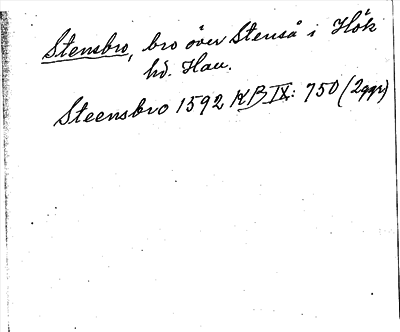 Stensbro, bro över Stenså i Hök
hd. Hall.
Steensbro 1592 KB IX: 750 (2ggr)